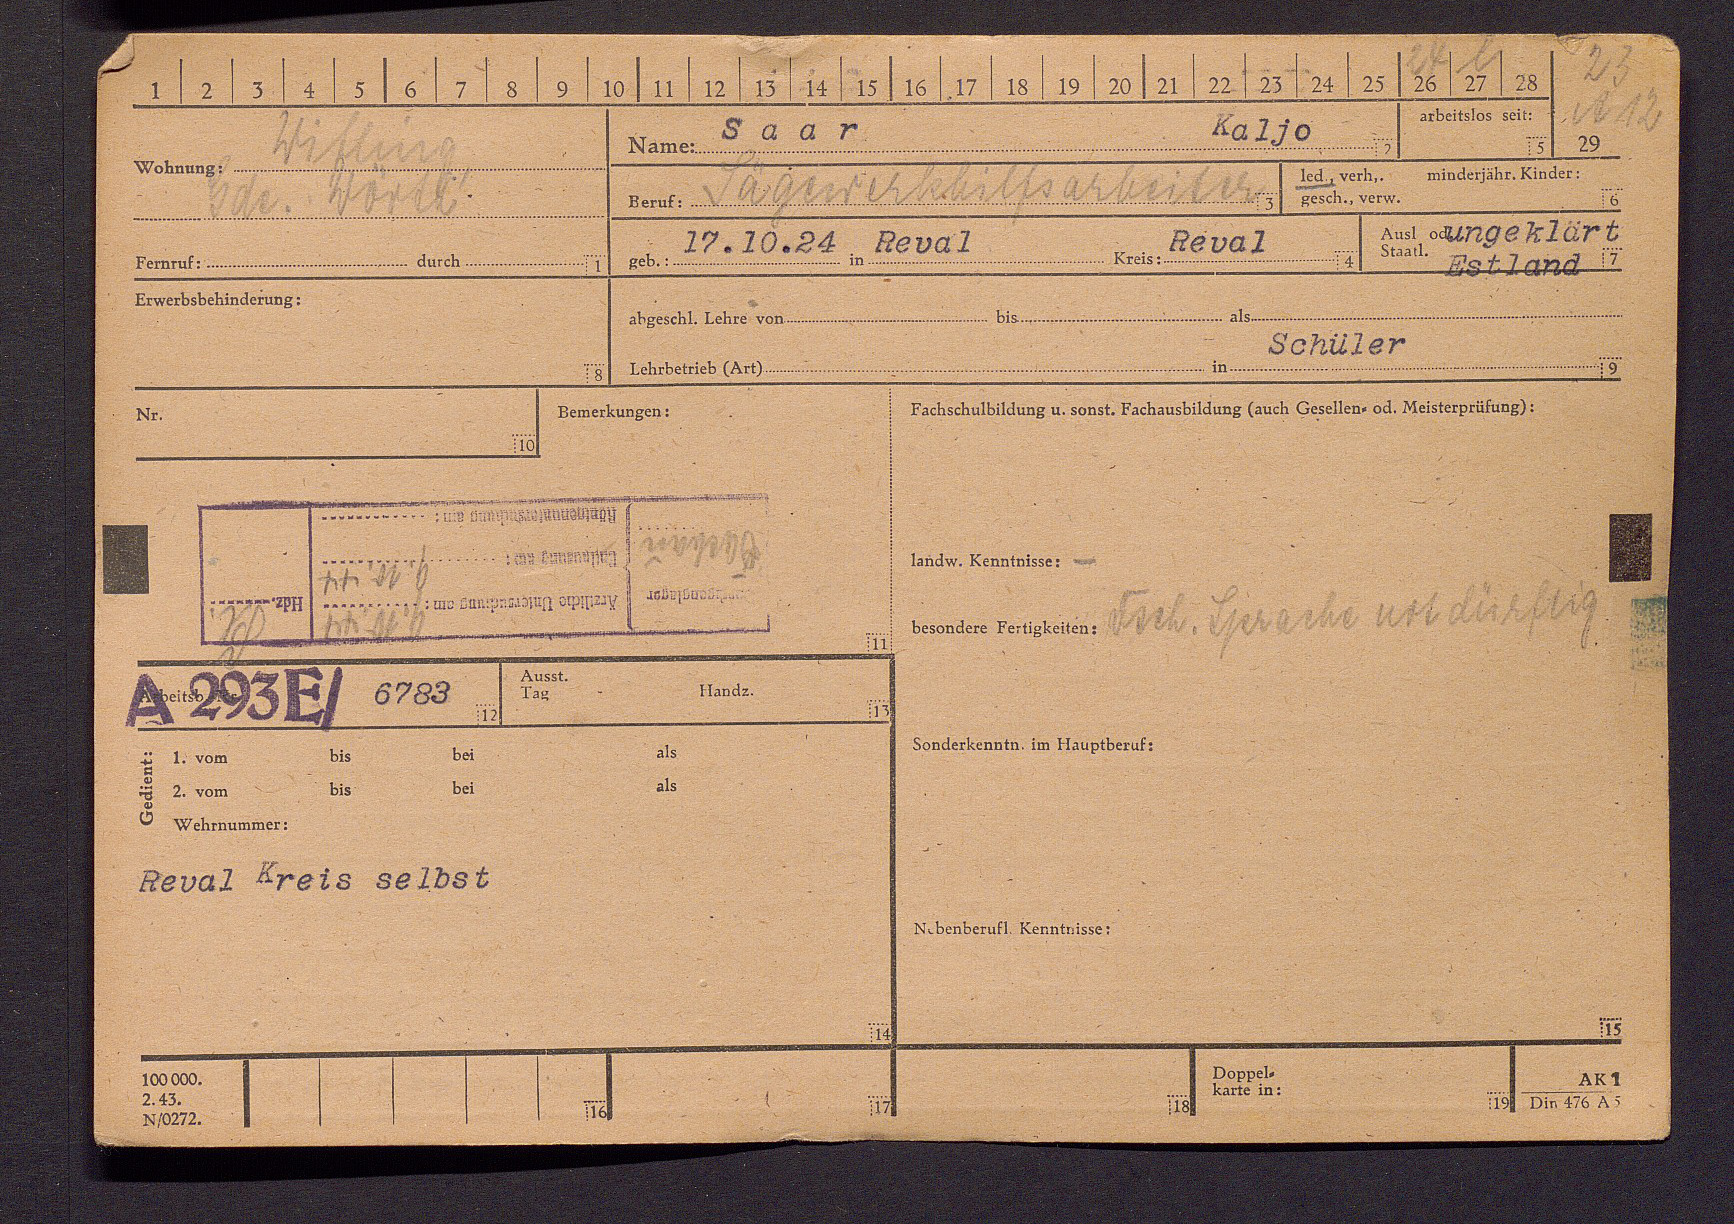 24
23
1 2 3 4 5 6 7 8 9 10 11 12 13 14 15 16 17 18 19 20 21 22 23 24 25 26 27 28
12
29
Wohnung: Wifling
Gde. Wörth
Fernruf: durch 1
Name: Saar Kaljo 2
arbeitslos seit: 5
Beruf: Sägewerkhilfsarbeiter 3
led., verh,. minderjähr. Kinder:
gesch., verw. 6
geb.: 17.10.24 in Reval Kreis: Reval 4
Ausl od. ungeklärt
Staatl. Estland 7
Erwerbsbehinderung:
8
abgeschl. Lehre von bis als
Schüler
Lehrbetrieb (Art) in 9
Nr.
10
Bemerkungen:
Durchgangslager Dachau
Ärztliche Untersuchung am: 9.10.44
Entlausung am: 9.10.44
Röntgenuntersuchung am:
Hdz.
11
Arbeitsb. Nr. A 293E/ 6783 12
Ausst.
Tag Handz. 13
Gedient:
1. vom bis bei als
2. vom bis bei als
Wehrnummer:
Reval Kreis selbst
14
Fachschulbildung u. sonst. Fachausbildung (auch Gesellen- od. Meisterprüfung):
landw. Kenntnisse: –
besondere Fertigkeiten: Dtsch. Sprache notdürftig
Sonderkenntn. im Hauptberuf:
Nebenberufl. Kenntnisse:
15
100 000.
2. 43.
N/0272.
16
17
18
Doppel-
karte in: 19
AK 1
Din 476 A 5